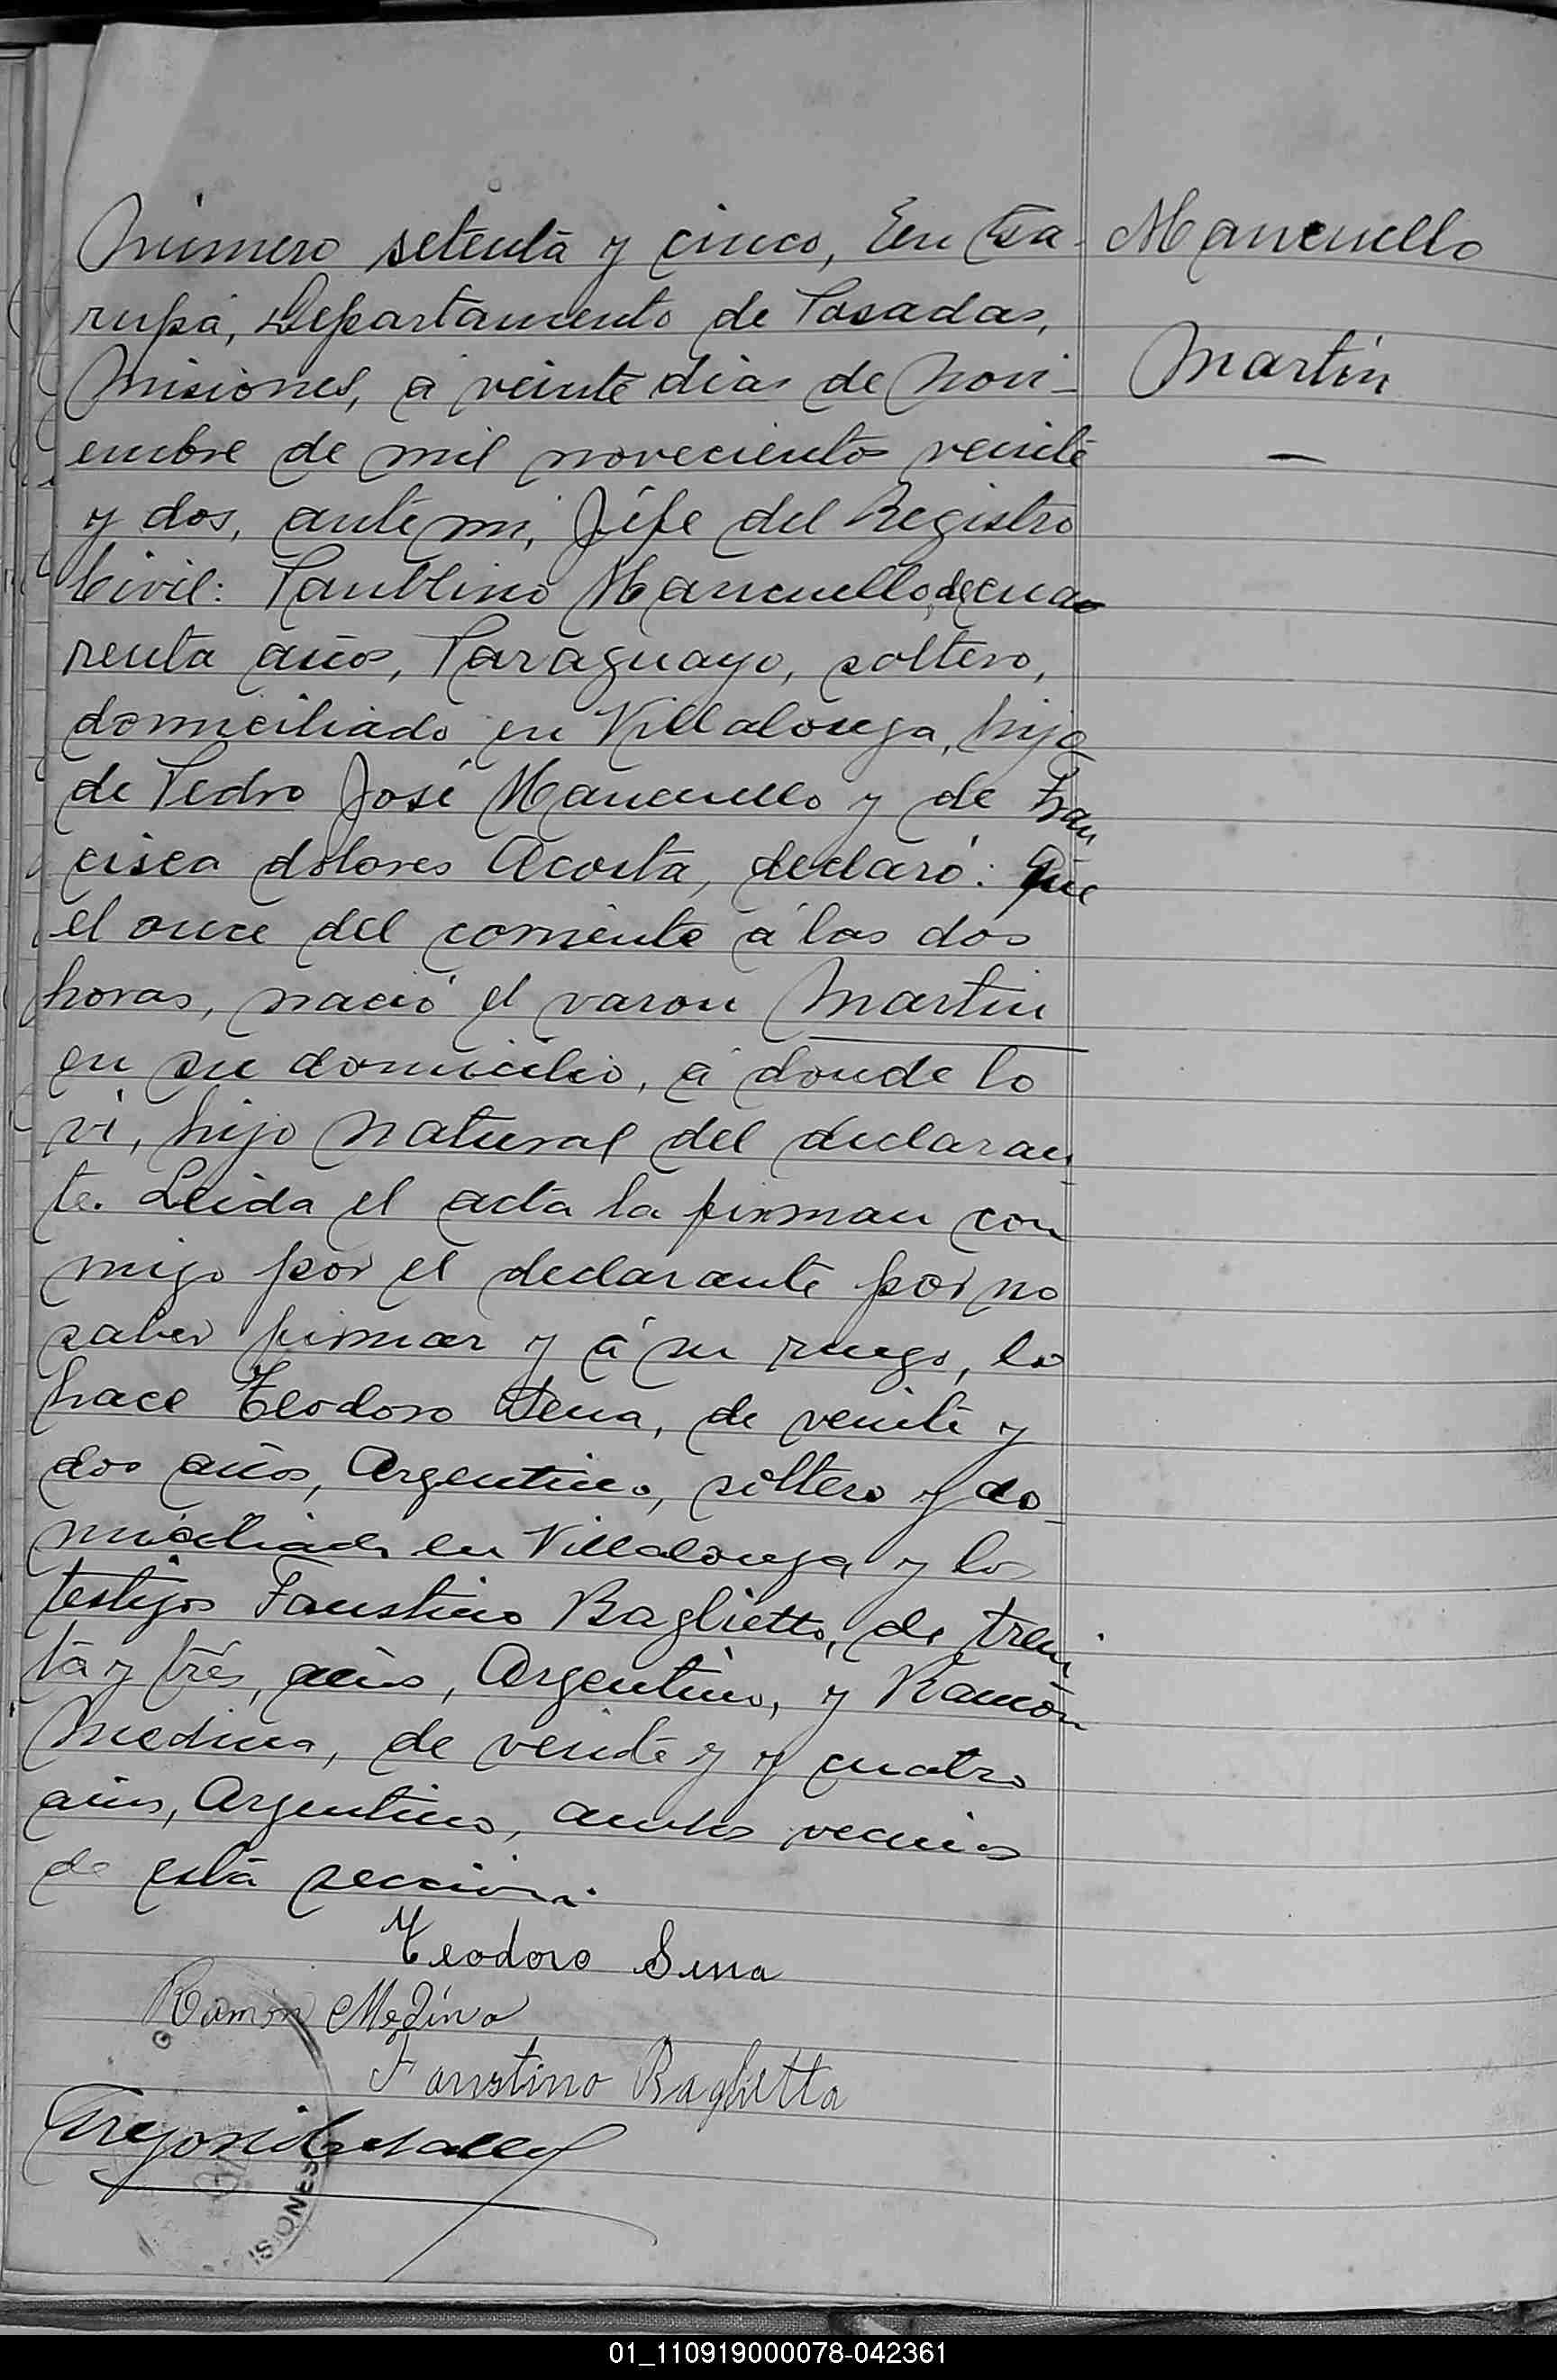 Número setenta y cinco, En Ga-
rupá, Departamento de Posadas,
Misiones, á veinte dias de Novi-
embre de mil novecientos veinte
y dos, ante mi, Jefe del Registro
Civil: Paublino Mancuello, de cua
renta años, Paraguayo, soltero,
domiciliado en Villalonga, hijo
de Pedro José Mancuello y de Fran
cisca dolores Acosta, declaró: Que
el once del corriente á las dos
horas, nació el varon Martin
en su domicilio, á donde lo
vi, hijo natural del declaran
te. Leida el acta la firman con
migo por el declarante por no
saber firmar y á su ruego, lo
hace Teodoro Sena, de veinte y
dos años, Argentino, soltero y do-
miciliado en Villalonga y los
testigos Faustino Baglietto, de trein
ta y tres, años, Argentino, y Ramón
Medina, de veinte y y cuatro
años, Argentino, ambos vecinos
de esta seccion.
Mancuello
Martin
Teodoro Sena
Ramón Medina
Faustino Baglietto
MISIONES
01_110919000078-042361